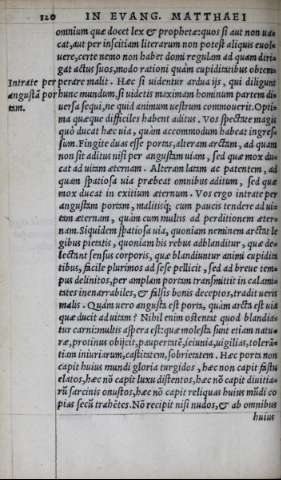 120 IN EVANG. MATTHAEI
omnium quæ docet lex & prophetæ: quos si aut non uacat
cat, aut per inscitiam literarum non potest aliquis euoluere
uere, certe nemo non habet domi regulam ad quam dirigat
gat actus suos, modo rationi quàm cupiditatibus obtemperare
Intrate per perare malit. Haec si uidentur ardua ijs, qui diligunt
angustā por hunc mundum, si uidetis maximam hominum partem diuersa
tam. uersa sequi, ne quid animum uestrum commoueris. Optima
ma quæque difficiles habent aditus. Vos spectate magis
quò ducat hæc uia, quàm accommodum habeat ingressum
sum. Fingite duas esse portas, alteram arctam, ad quam
non sit aditus nisi per angustam uiam, sed quæ mox ducat
cat ad uitam æternam. Alteram latam ac patentem, ad
quam spatiosa uia præbeat omnibus aditum, sed quæ
mox ducat in exitium æternum. Vos ergo intrate per
angustam portam, malitisq́; cum paucis tendere ad uitam
tam æternam, quàm cum multis ad perditionem æternam
nam. Siquidem spatiosa uia, quoniam neminem arctat legibus
gibus pietatis, quoniam his rebus adblanditur, quæ delectant
lectant sensus corporis, quæ blandiuntur animi cupiditatibus
tibus, facile plurimos ad sese pellicit, sed ad breue tempus
pus delinitos, per amplam portam transmittit in calamitates
tates inenarrabiles, & falsis bonis deceptos, tradit ueris
malis. Quàm uero angusta est porta, quàm arcta est uia
quæ ducit ad uitam? Nihil enim ostentat quod blandiatur
tur carni: multis aspera est: quæ molesta sunt etiam naturæ
ræ, protinus obijcit, paupertatē, ieiunia, uigilias, tolerātiam
tiam iniuriarum, castitatem, sobrietatem. Hæc porta non
capit huius mundi gloria turgidos, hæc non capit fastu
elatos, hæc nō capit luxu distentos, hæc nō capit diuitiarū
rū sarcinis onustos, hæc nō capit reliquas huius mūdi copias
pias secū trahētes. Nō recipit nisi nudos, & ab omnibus
huius